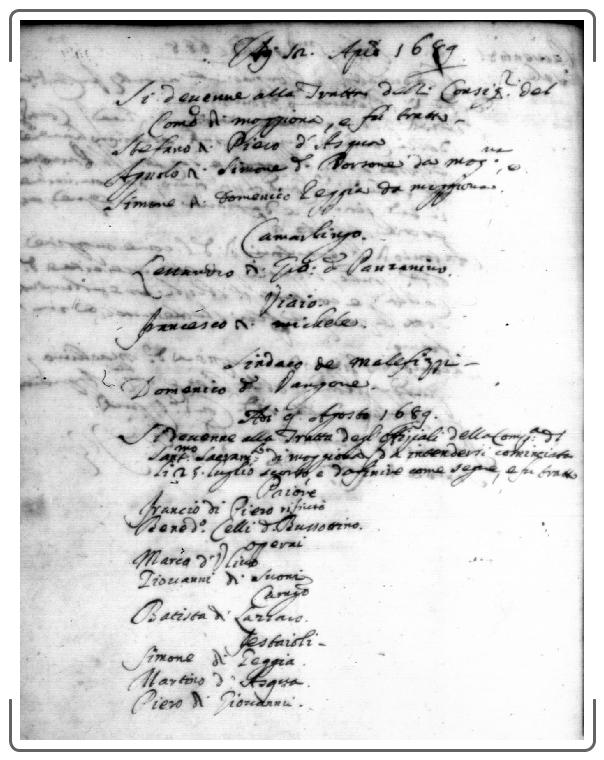 Adj 12. Aple 1689.
Si devenne alla Tratta delli Consigri. del
Come. di moggiona, e fu tratto -
Stefano di Piero d'Asqua
Agnolo di Simone d. da mogna, e
Simone di Domenico Leggia da moggiona.
Camarlingo.
di Gio: d.
Viaio.
Francesco di michele.
Sindaco de malefizzi -
Domenico d.
Adi 9 Agosto 1689.
Si devenne alla Tratta degl'offiziali della Compa. del
Santmo. Sagramto. di moggiona, da intendersi cominciata
li 25. luglio scorso, e da finire come segue, e fu tratto
Priore
Francio di Piero rifiutò
Bened. Celli d.
Operai
Marco
Giovanni di
Camgo
Batista di Lazzaro.
Festaioli -
Simone di Leggia.
Martino d'Asqua.
Piero di Giovanni.